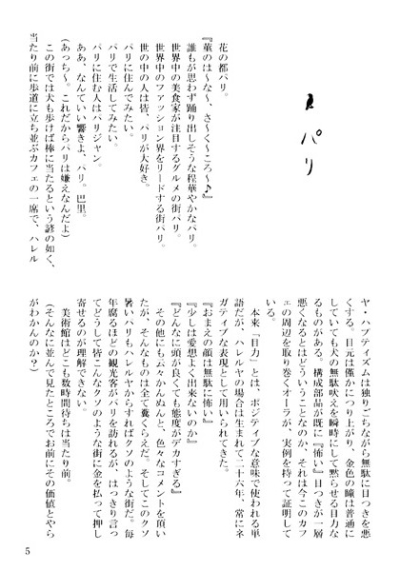 パリ
花の都パリ。
『菫のは～な～、さ～く～ころ～♪』
誰もが思わず踊り出しそうな程華やかなパリ。
世界中の美食家が注目するグルメの街パリ。
世界中のファッション界をリードする街パリ。
世の中の人は皆、パリが大好き。
パリに住んでみたい。
パリで生活してみたい。
パリに住む人はパリジャン。
ああ、なんていい響きよ、パリ。巴里。
(あっち～。これだからパリは嫌えなんだよ)
この街では犬も歩けば棒に当たるという諺の如く、
当たり前に歩道に立ち並ぶカフェの一席で、ハレル
ヤ・ハプティズムは独りごちながら無駄に目つきを悪
くする。目元は僅かにつり上がり、金色の瞳は普通に
していても犬の無駄吠えを瞬時にして黙らせる目力な
るものがある。構成部品が既に『怖い』目つきが一層
悪くなるとはどういうことなのか、それは今このカフ
ェの周辺を取り巻くオーラが、実例を持って証明して
いる。
本来「目力」とは、ポジティブな意味で使われる単
語だが、ハレルヤの場合は生まれて二十六年、常にネ
ガティブな表現として用いられてきた。
『おまえの顔は無駄に怖い』
『少しは愛想よく出来ないのか』
『どんなに頭が良くても態度がデカすぎる』
その他にも云々かんぬんと、色々なコメントを頂い
たが、そんなものは全て糞くらえだ。そしてこのクソ
暑いパリもハレルヤからすればクソのような街だ。毎
年腐るほどの観光客がパリを訪れるが、はっきり言っ
てどうして皆こんなクソのような街に金を払って押し
寄せるのが理解できない。
美術館はどこも数時間待ちは当たり前。
(そんなに並んで見たところでお前にその価値とやら
がわかんのか？)
5